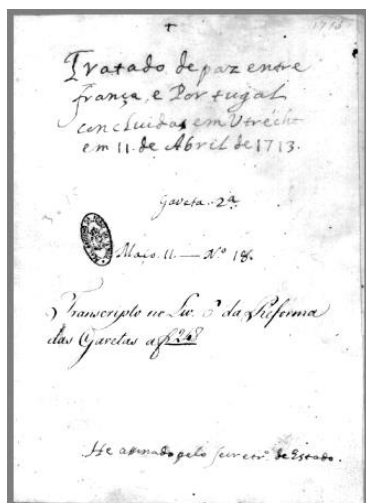 1713
Tratado de paz entre
França, e Portugal
concluidas em Utrecht
em 11. de Abril de 1713.
Gaveta. 2ª
Maço. 11. — Nº 18.
Transcripto no Liv. da Reforma
das Gavetas a f 248
He assinado pelo secretrº de Estado.